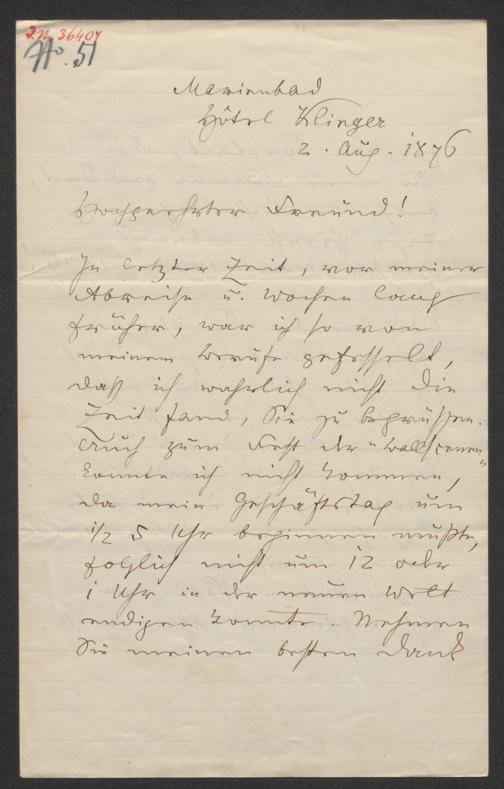 I.N. 36404
No. 51
Marienbad
Hôtel Klinger
2. Aug. 1876
Hochgeehrter Freund!
In letzter Zeit, vor meiner
Abreise u. Wochen lang
früher, war ich so von
meinem Berufe gefesselt,
daß ich wahrlich nicht die
Zeit fand, Sie zu begrüssen.
Auch zum Fest der "Ballscenen"
konnte ich nicht kommen,
da mein Geschäftstag um
1/2 5 Uhr beginnen mußte,
folglich nicht um 12 oder
1 Uhr in der neuen Welt
endigen konnte. Nehmen
Sie meinen besten Dank